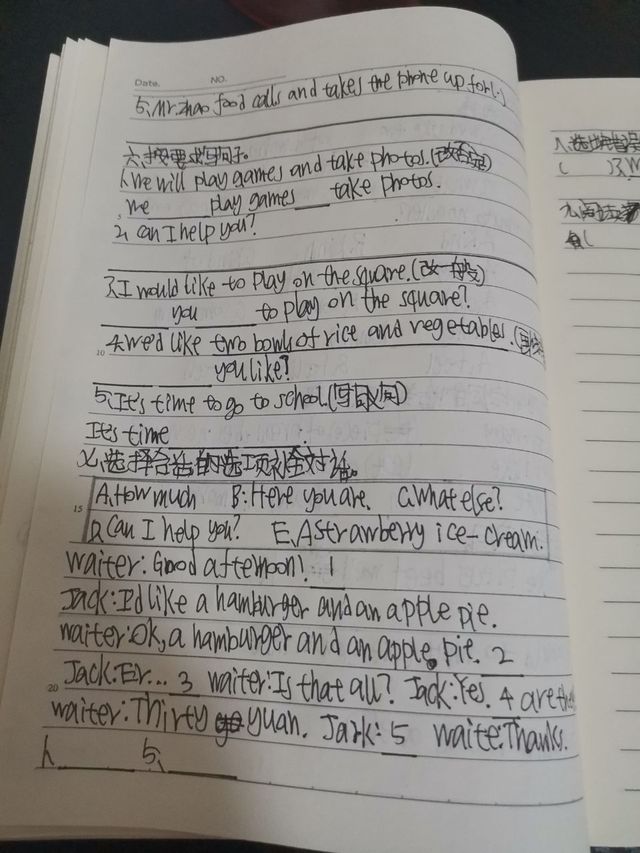 Date. NO.
5. Mr. Zhao food calls and takes the phone up for( )
六、按要求写句子。
1. We will play games and take photos.(改否定)
We ____ play games ____ take photos.
5
2. Can I help you?
3. I would like to play on the square.(改一般疑)
____ you ____ to play on the square?
4. We'd like two bowls of rice and vegetables.
10
____ ____ ____ you like?
5. It's time to go to school.(写同义句)
It's time
七、选择合适的选项补全对话。
A. How much B: Here you are. C. What else?
15
D. Can I help you? E. A strawberry ice-cream.
waiter: Good afternoon! 1
Jack: I'd like a hamburger and an apple pie.
waiter: Ok, a hamburger and an apple pie. 2
Jack: Er... 3 waiter: Is that all? Jack: Yes. 4 are
20
waiter: Thirty yuan. Jark: 5 waite: Thanks.
1. ____ 5. ____